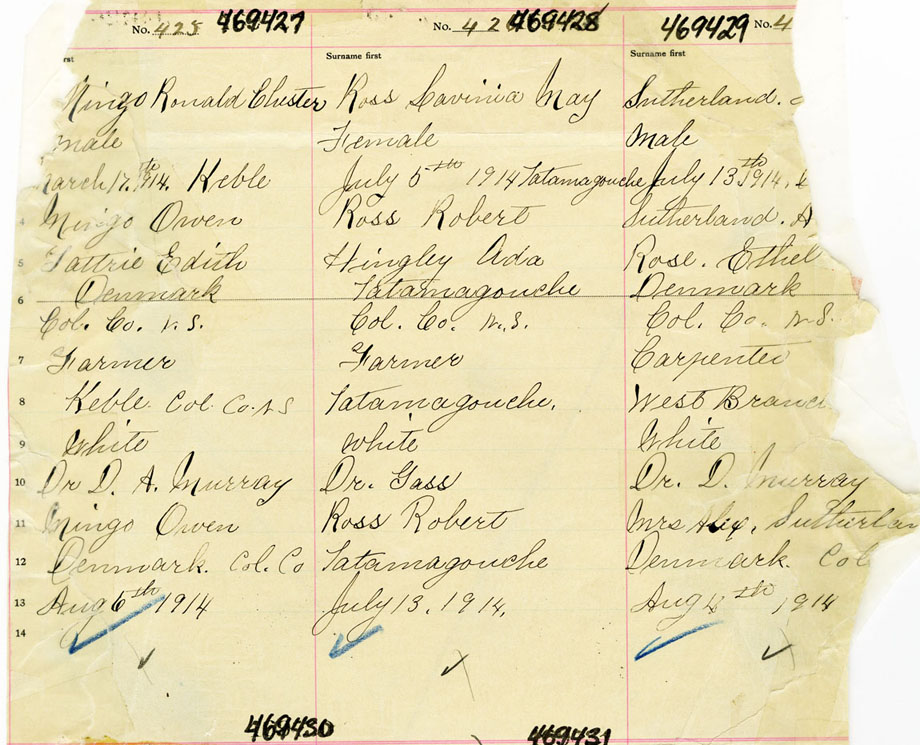 No. 425 469427 No. 42 469428 469429 No. 4
rst Surname first Surname first
Mingo Ronald Chester Ross Lavinia May Sutherland.
Male Female Male
March 17th 1914. Keble July 5th 1914 Tatamagouche July 13th 1914.
4 Mingo Owen Ross Robert Sutherland. A
5 Tattrie Edith Hingley Ada Rose. Ethel
Denmark Tatamagouche Denmark
6
Col. Co. N.S. Col. Co. N.S. Col. Co. N.S.
7 Farmer Farmer Carpenter
8 Keble. Col. Co. N S Tatamagouche. West Branc
9 White White White
10 Dr D. A. Murray Dr. Gass Dr. D. Murray
11 Mingo Owen Ross Robert Mrs Alex. Sutherlan
12 Denmark. Col. Co Tatamagouche Denmark. Col
13 Aug 6th 1914 July 13. 1914. Aug th 1914
14
469430 469431